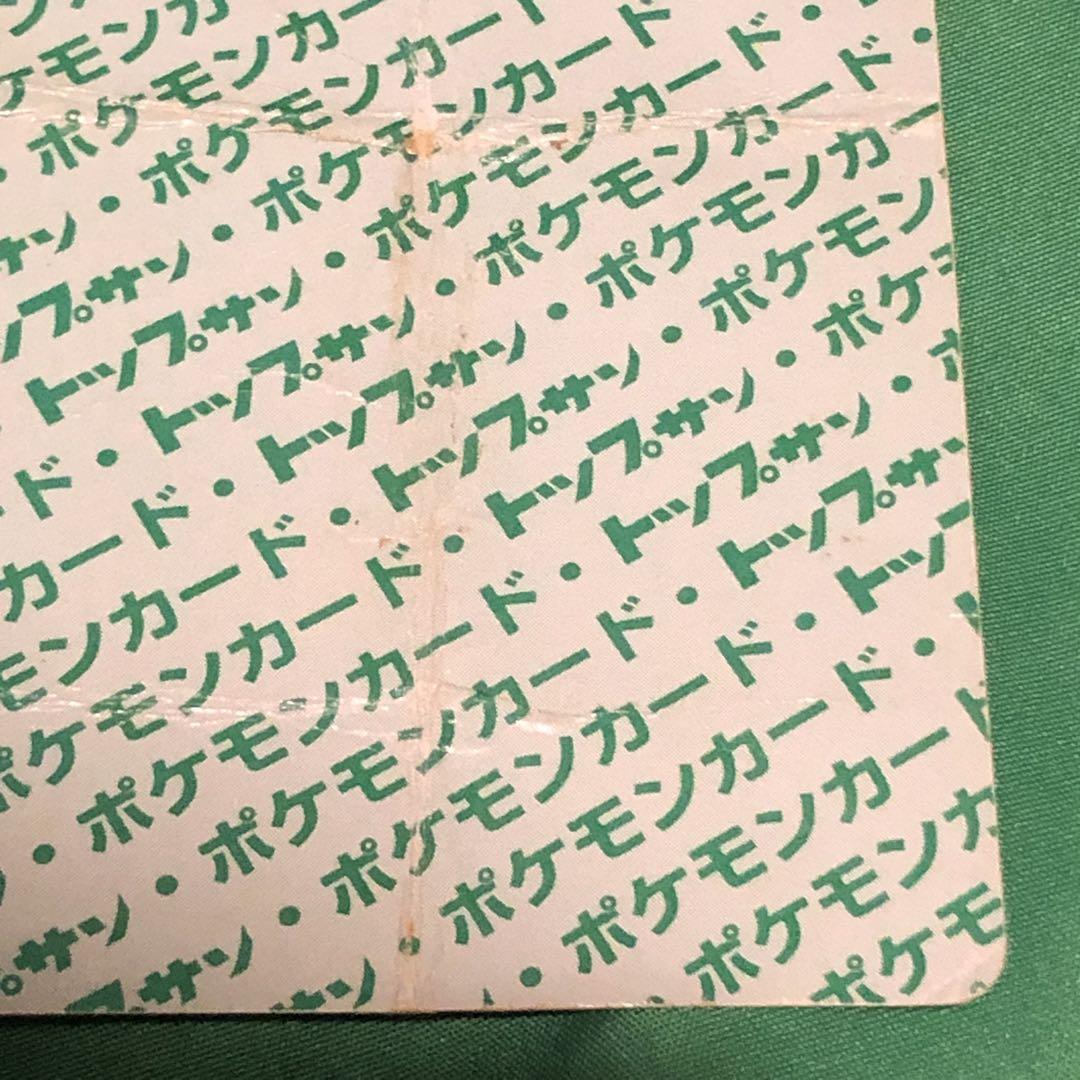 ケモンカ
・ポケモンカー
サン・ポケモンカー
ップサン・ポケモンカード
トップサン・ポケモンカード・
ド・トップサン・ポケモンカード・
カード・トップサン・ポケモンカー
モンカード・トップサン・ポケモン
ポケモンカード・トップサン・ポケ
・ポケモンカード・トップサン・
サン・ポケモンカード・トップサン
プサン・ポケモンカード・トップ
サン・ポケモンカード・
・ポケモンカー
ポケモンカ
ポケモ